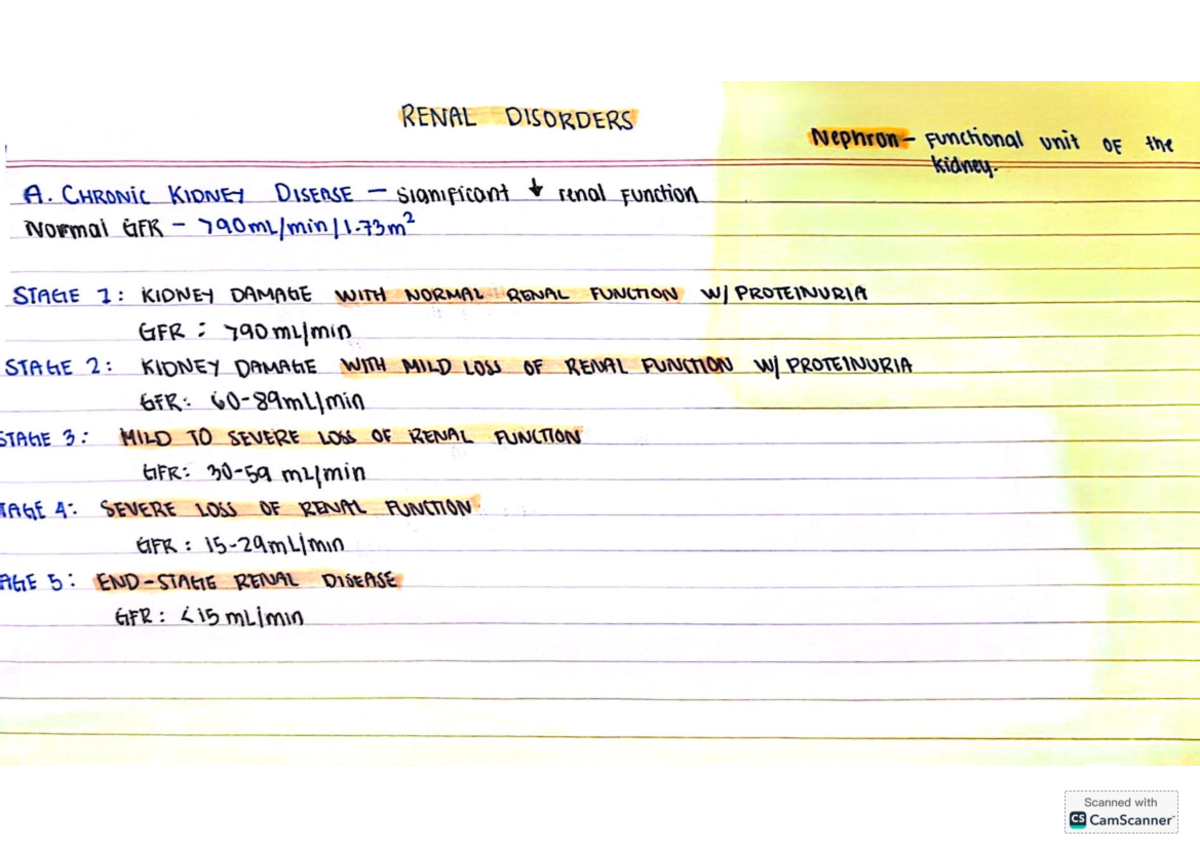 RENAL DISORDERS
Nephron - Functional unit of the
kidney.
A. CHRONIC KIDNEY DISEASE - significant ↓ renal function
Normal GFR - >90mL/min/1.73m²
STAGE 1: KIDNEY DAMAGE WITH NORMAL RENAL FUNCTION W/ PROTEINURIA
GFR: >90mL/min
STAGE 2: KIDNEY DAMAGE WITH MILD LOSS OF RENAL FUNCTION W/ PROTEINURIA
GFR: 60-89mL/min
STAGE 3: MILD TO SEVERE LOSS OF RENAL FUNCTION
GFR: 30-59 mL/min
TAGE 4: SEVERE LOSS OF RENAL FUNCTION
GFR: 15-29mL/min
AGE 5: END-STAGE RENAL DISEASE
GFR: <15 mL/min
Scanned with
CS CamScanner